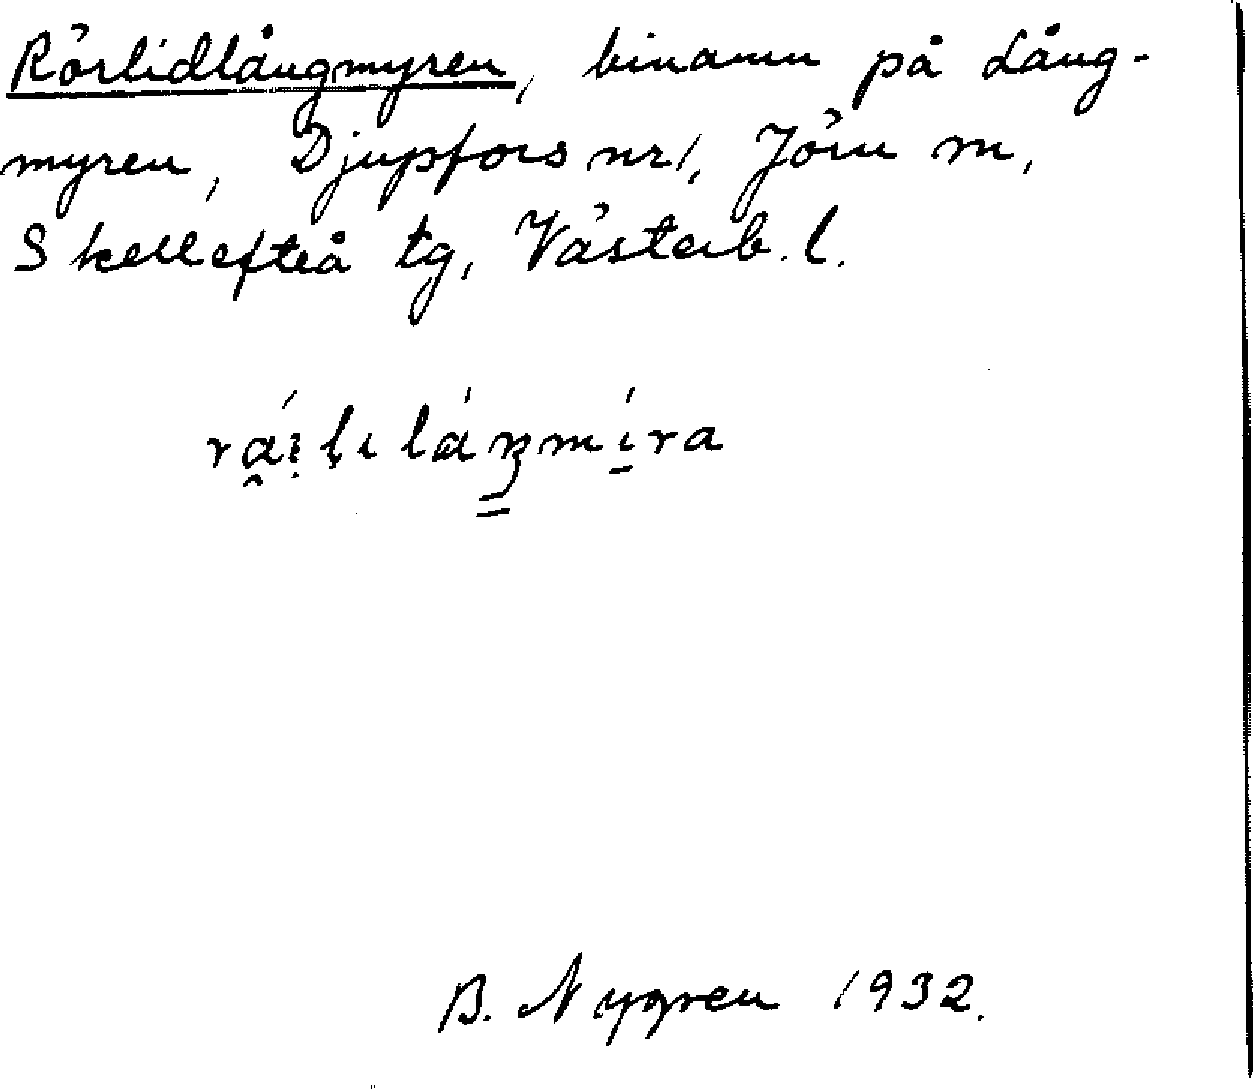 Rörlidlångmyren, binamn på Lång-
myren, Djupfors nr 1, Jörn sn,
Skellefteå tg, Västerb. l.
B. Nygren 1932.